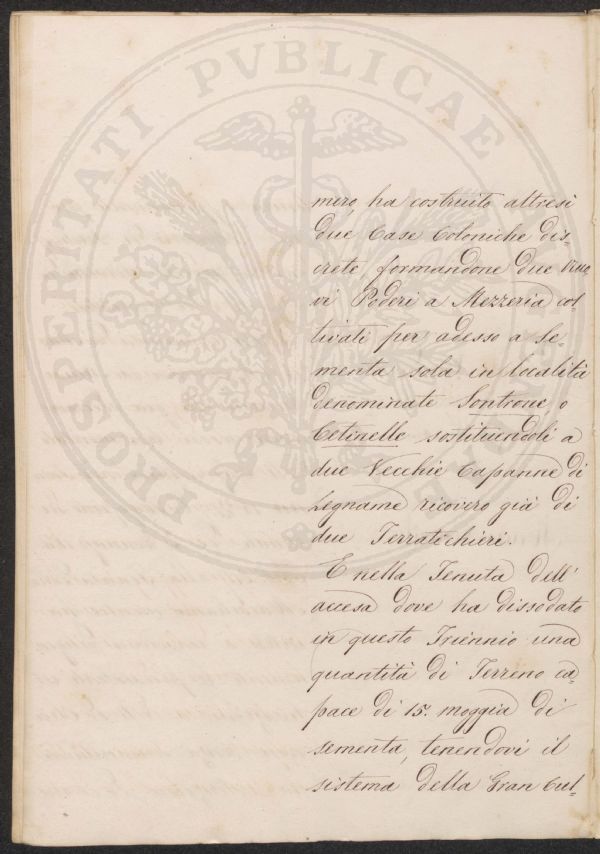 PROSPERITATI PVBLICAE
mero, ha costruito altresì
due Case Coloniche dis-
crete formandone due Nuo
vi Poderi a Mezzeria col-
tivati per adesso a Se-
menta sola in località
denominate Sontrone, o
Cetinelle sostituendoli a
due Vecchie Capanne di
Legname ricovero già di
due Terratichieri.
E nella Tenuta dell'
accesa dove ha dissodato
in questo Triennio una
quantità di Terreno ca-
pace di 15. moggia di
sementa, tenendovi il
sistema della Gran Cul-